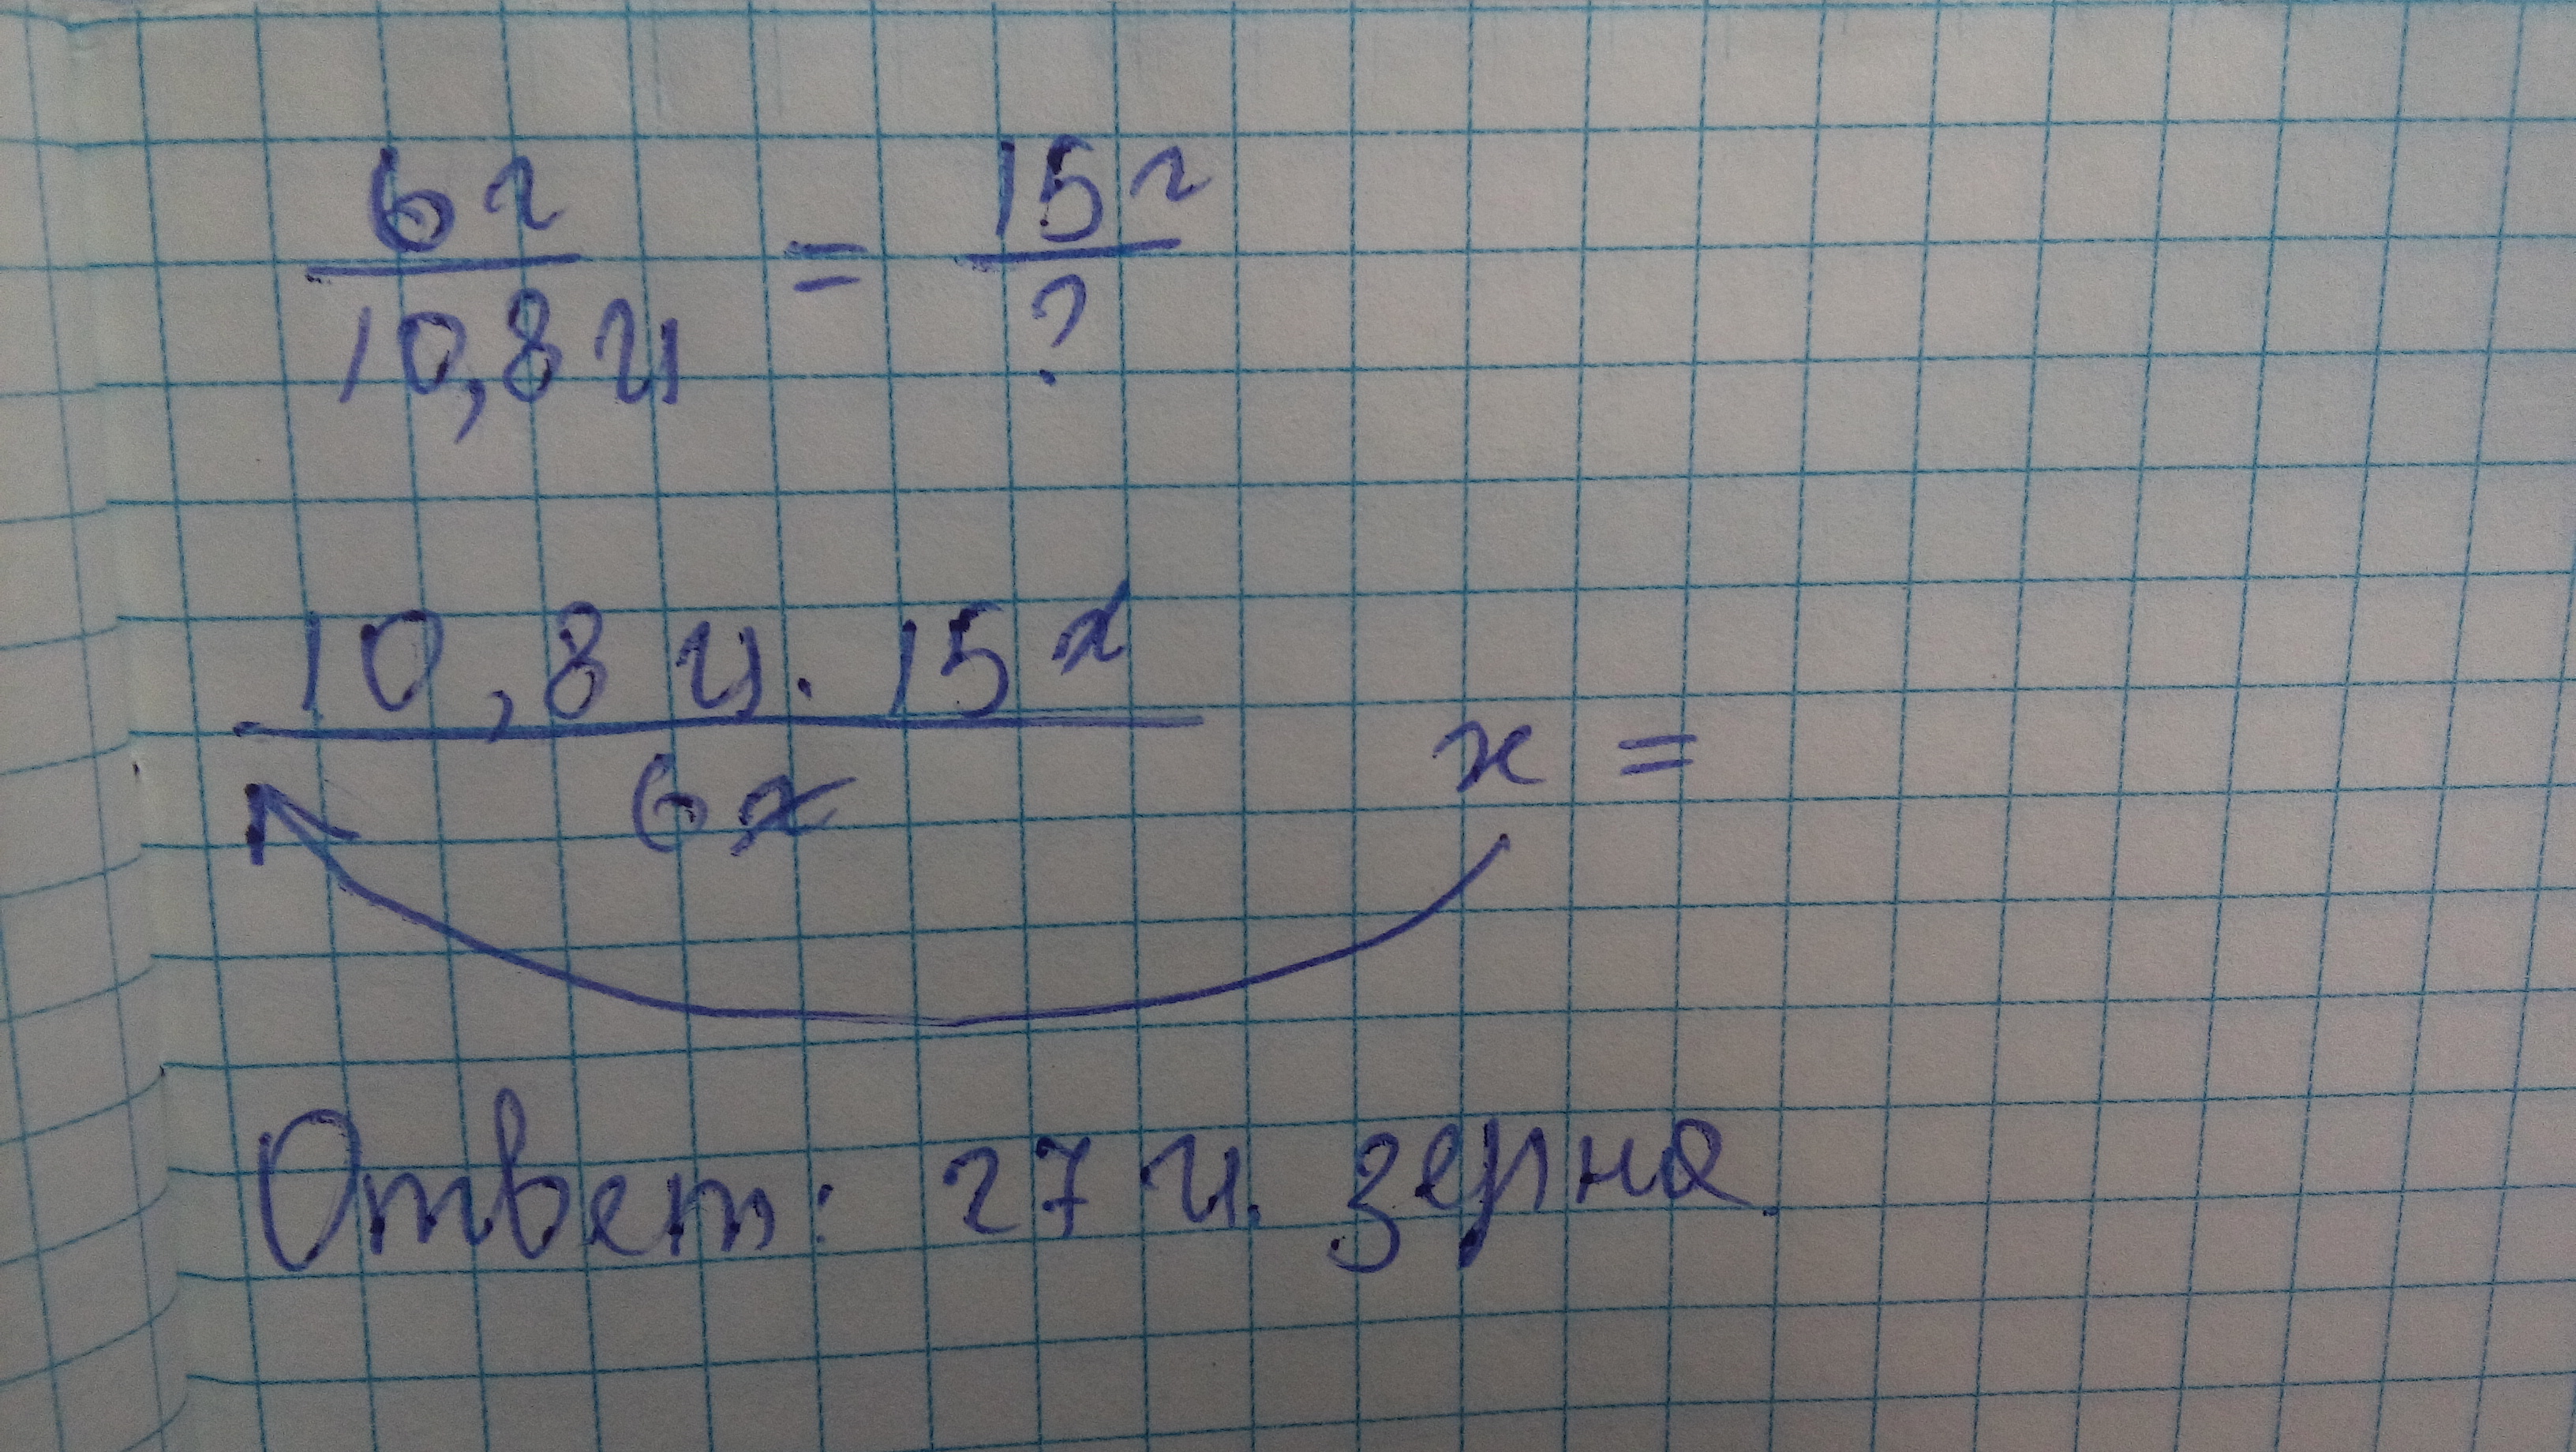 6г / 10,8ц = 15г / ?
10,8 ц. 15г / 6г x =
Ответ: 27 ц. зерна.